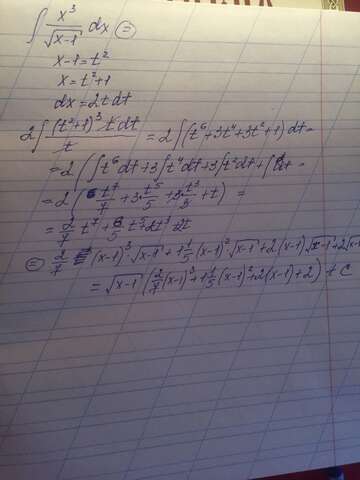 ∫ x³/√(x-1) dx ⊜
x-1=t²
x=t²+1
dx=2tdt
2∫ (t²+1)³ · tdt / t = 2∫(t⁶+3t⁴+3t²+1)dt=
=2(∫t⁶dt+3∫t⁴dt+3∫t²dt+∫dt=
=2(t⁷/7+3t⁵/5+3t³/3+t) =
=2/7 t⁷+6/5 t⁵+2t³+2t
⊜ 2/7 (x-1)³·√x-1+1 1/5 (x-1)²·√x-1+2(x-1)√x-1+2√x-1
=√x-1 (2/7(x-1)³+1 1/5(x-1)²+2(x-1)+2)+C